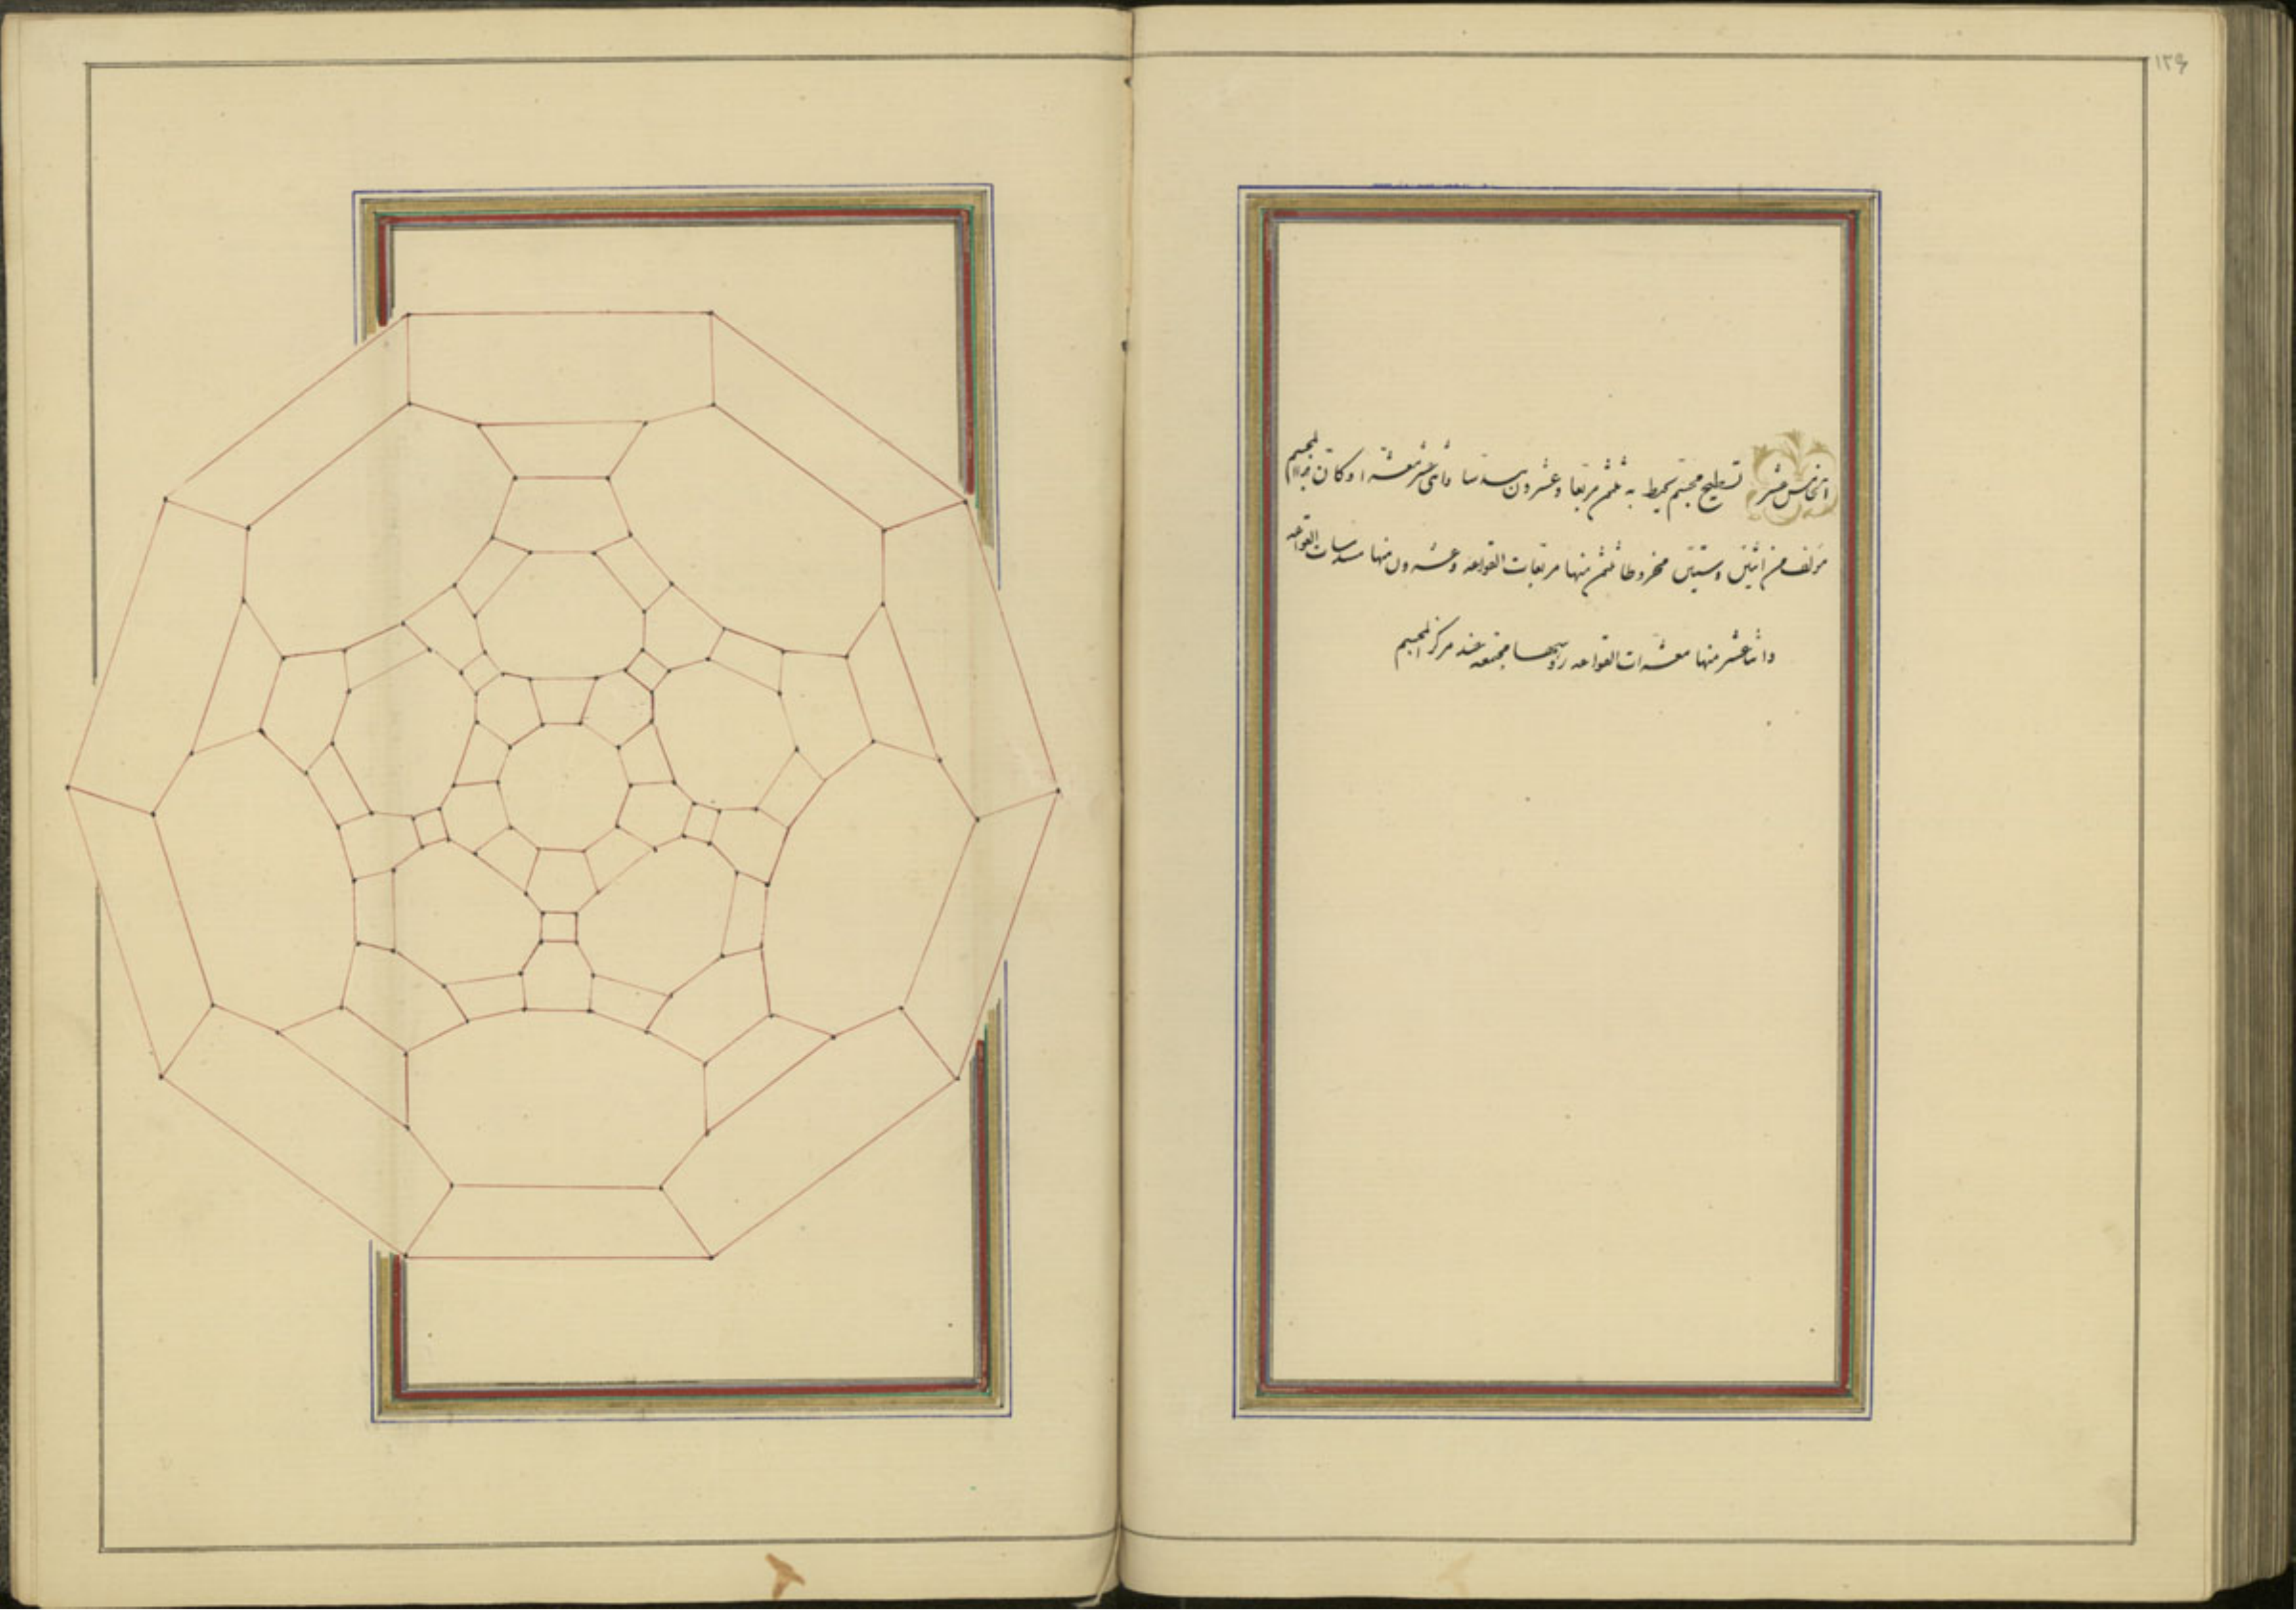 الخامس عشر تسطيح مجسم يحيط به ثلثون مربعا وعشرون مسدسا واثنى عشر معشرا وكان المجسم
مؤلف من اثنين وستين مخروطا ثلثون منها مربعات القواعد وعشرون منها مسدسات القواعد
واثناعشر منها معشرات القواعد رؤسها مجتمعة عند مركز المجسم